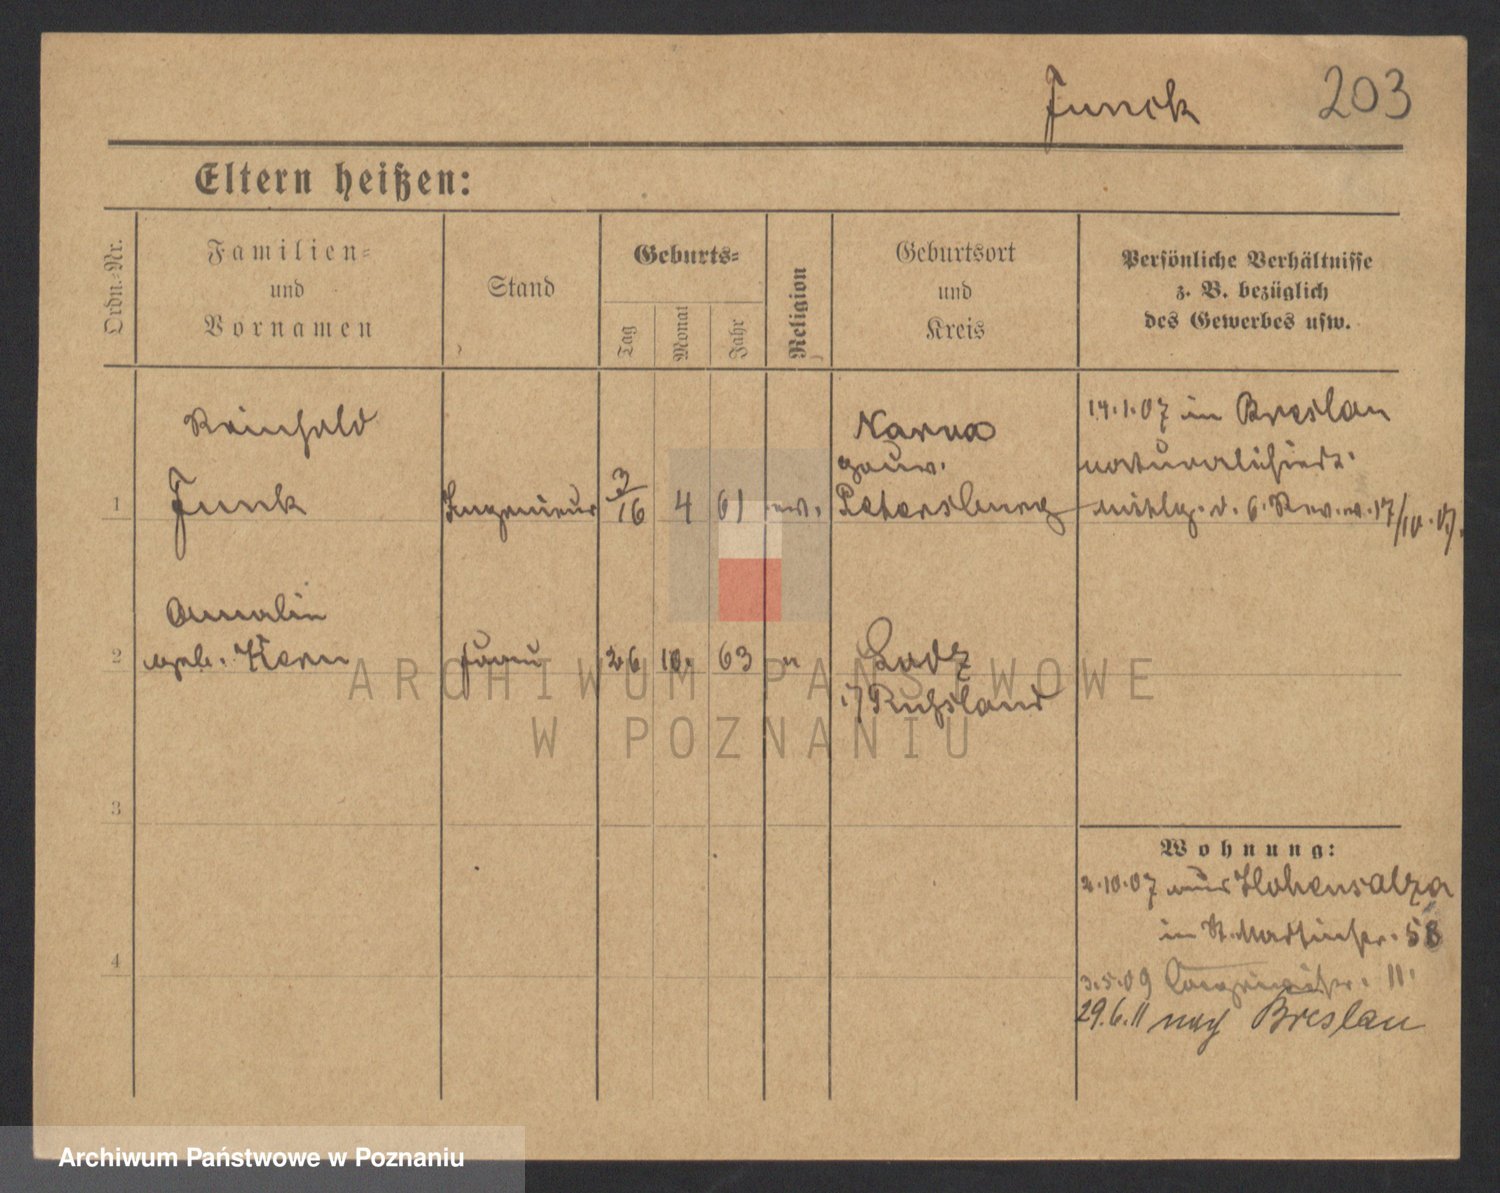 Junck 203
Eltern heißen:
Ordn.-Nr.
Familien-
und
Vornamen
Stand
Geburts-
Tag
Monat
Jahr
Religion
Geburtsort
und
Kreis
Persönliche Verhältnisse
z. B. bezüglich
des Gewerbes usw.
Reinhold
1 Junk Ingenieur 3/16 4 61 ev.
Narwa
gouv.
Petersburg
14.1.07 in Breslau
naturalisiert.
mitlg. d. 6. Rev. v. 17/10.07.
Amalie
2 geb. Kern Frau 26 10. 63 "
Lodz
i/Rußland
3
4
Wohnung:
2.10.07 aus Hohensalza
in St. Martinstr. 58
3.5.09 11.
29.6.11 nach Breslau
ARCHIWUM PAŃSTWOWE
W POZNANIU
Archiwum Państwowe w Poznaniu